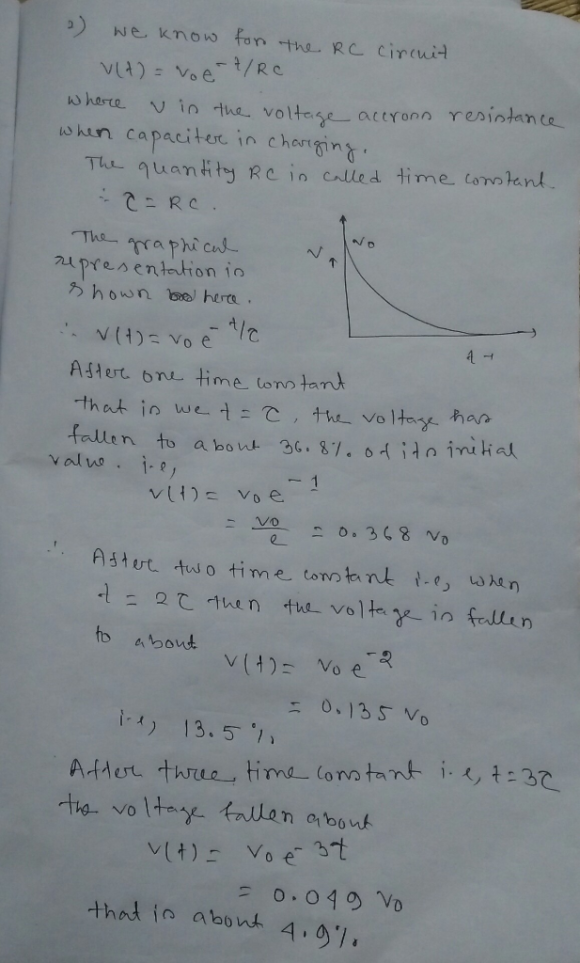 2) We know for the RC circuit
V(t) = V₀e^-t/RC
where V is the voltage accross resistance
when capaciter is charging.
The quantity RC is called time constant.
∴ τ = RC.
The graphical
representation is
shown here.
V ↑ V₀
t →
∴ V(t) = V₀ e^-t/τ
After one time constant
that is we t = τ, the voltage has
fallen to about 36.8% of its initial
value. i.e,
V(t) = V₀ e^-1
= V₀/e = 0.368 V₀
∴ After two time constant i.e, when
t = 2τ then the voltage is fallen
to about
V(t) = V₀ e^-2
= 0.135 V₀
i.e, 13.5%,
After three, time constant i.e, t = 3τ
the voltage fallen about
V(t) = V₀ e^-3t
= 0.049 V₀
that is about 4.9%.